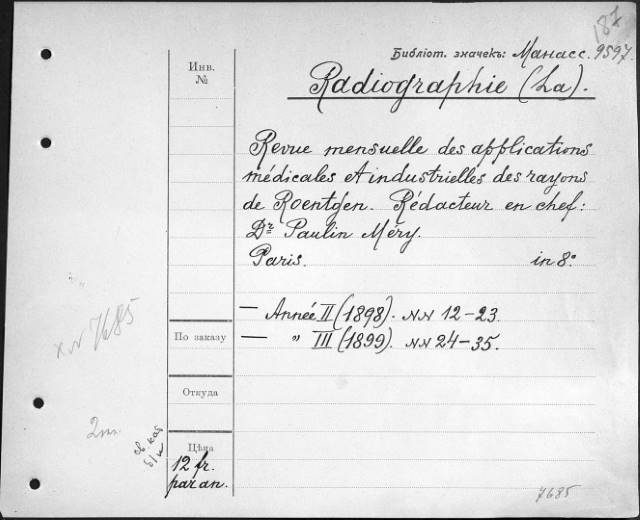 187
Библіот. значекъ: Манасс. 9597.
Инв.
№
Radiographie (La).
Revue mensuelle des applications
médicales et industrielles des rayons
de Roentgen. Rédacteur en chef:
Dr Paulin Méry.
Paris. in 8°
— Année II (1898). NN 12-23.
— " III (1899). NN 24-35.
По заказу
Откуда
Цѣна
12 fr.
par an.
x N 7685
7685